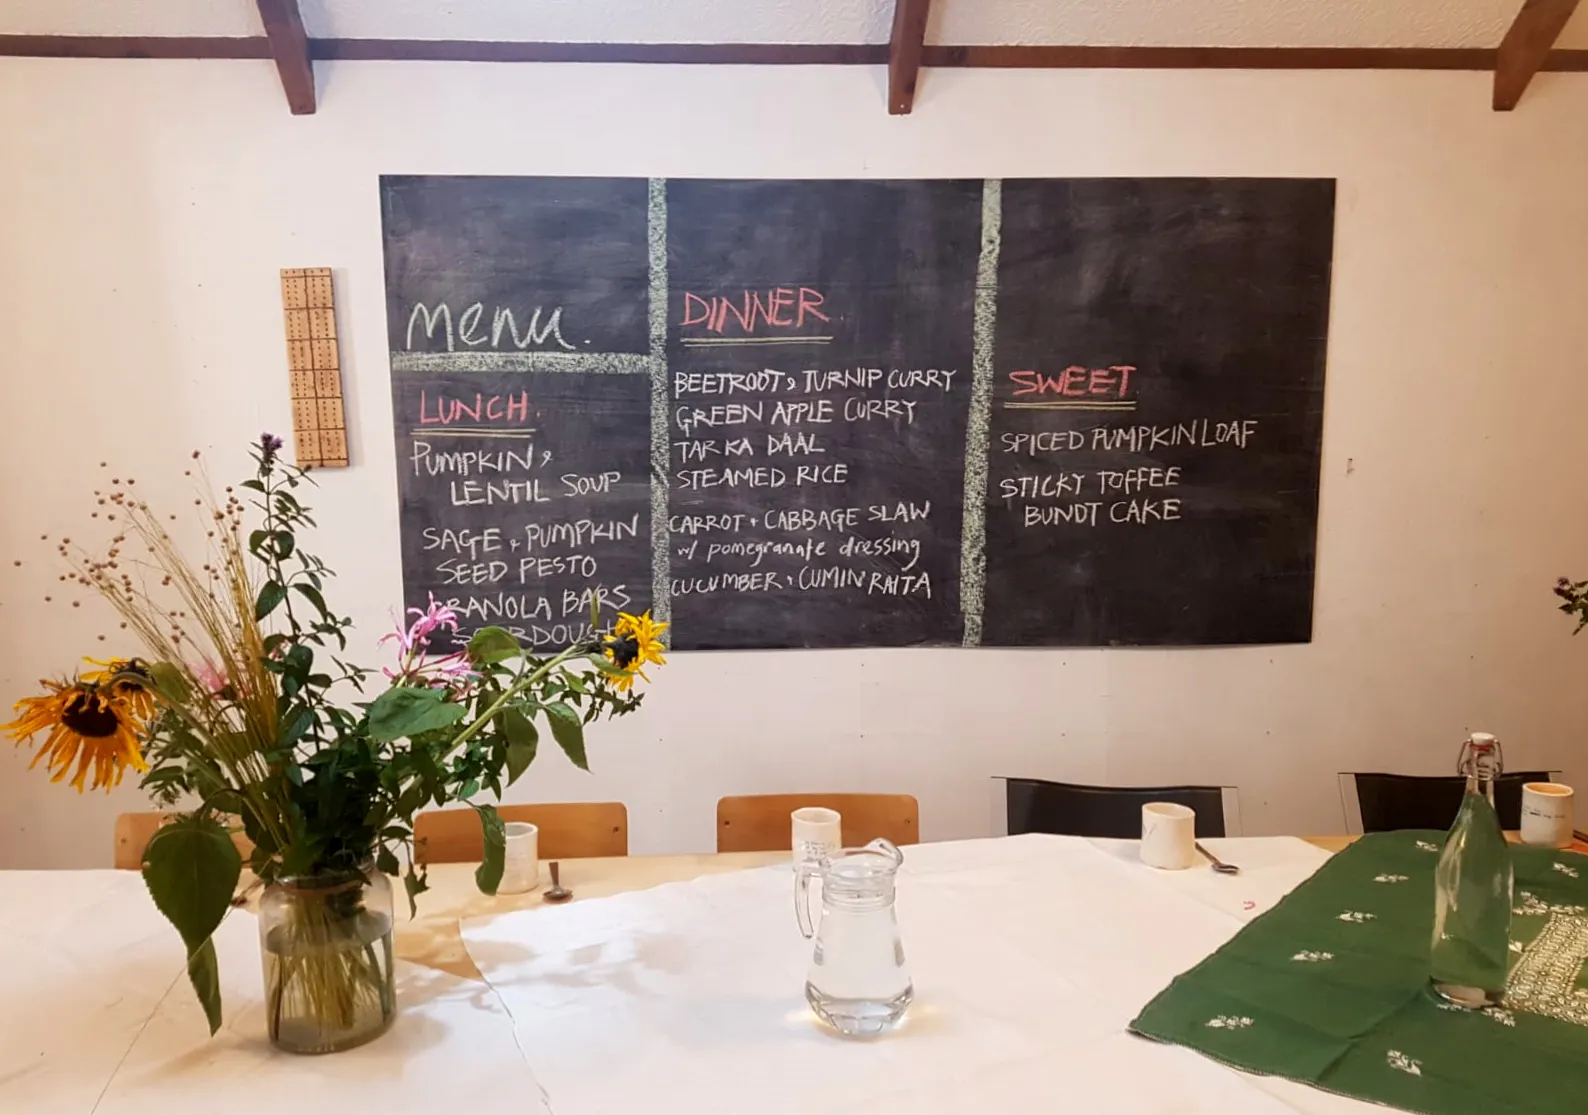 Menu.
LUNCH.
PUMPKIN &
LENTIL SOUP
SAGE & PUMPKIN
SEED PESTO
GRANOLA BARS
SOURDOUGH
DINNER
BEETROOT & TURNIP CURRY
GREEN APPLE CURRY
TARKA DAAL
STEAMED RICE
CARROT + CABBAGE SLAW
w/ pomegranate dressing
CUCUMBER + CUMIN RAITA
SWEET
SPICED PUMPKIN LOAF
STICKY TOFFEE
BUNDT CAKE